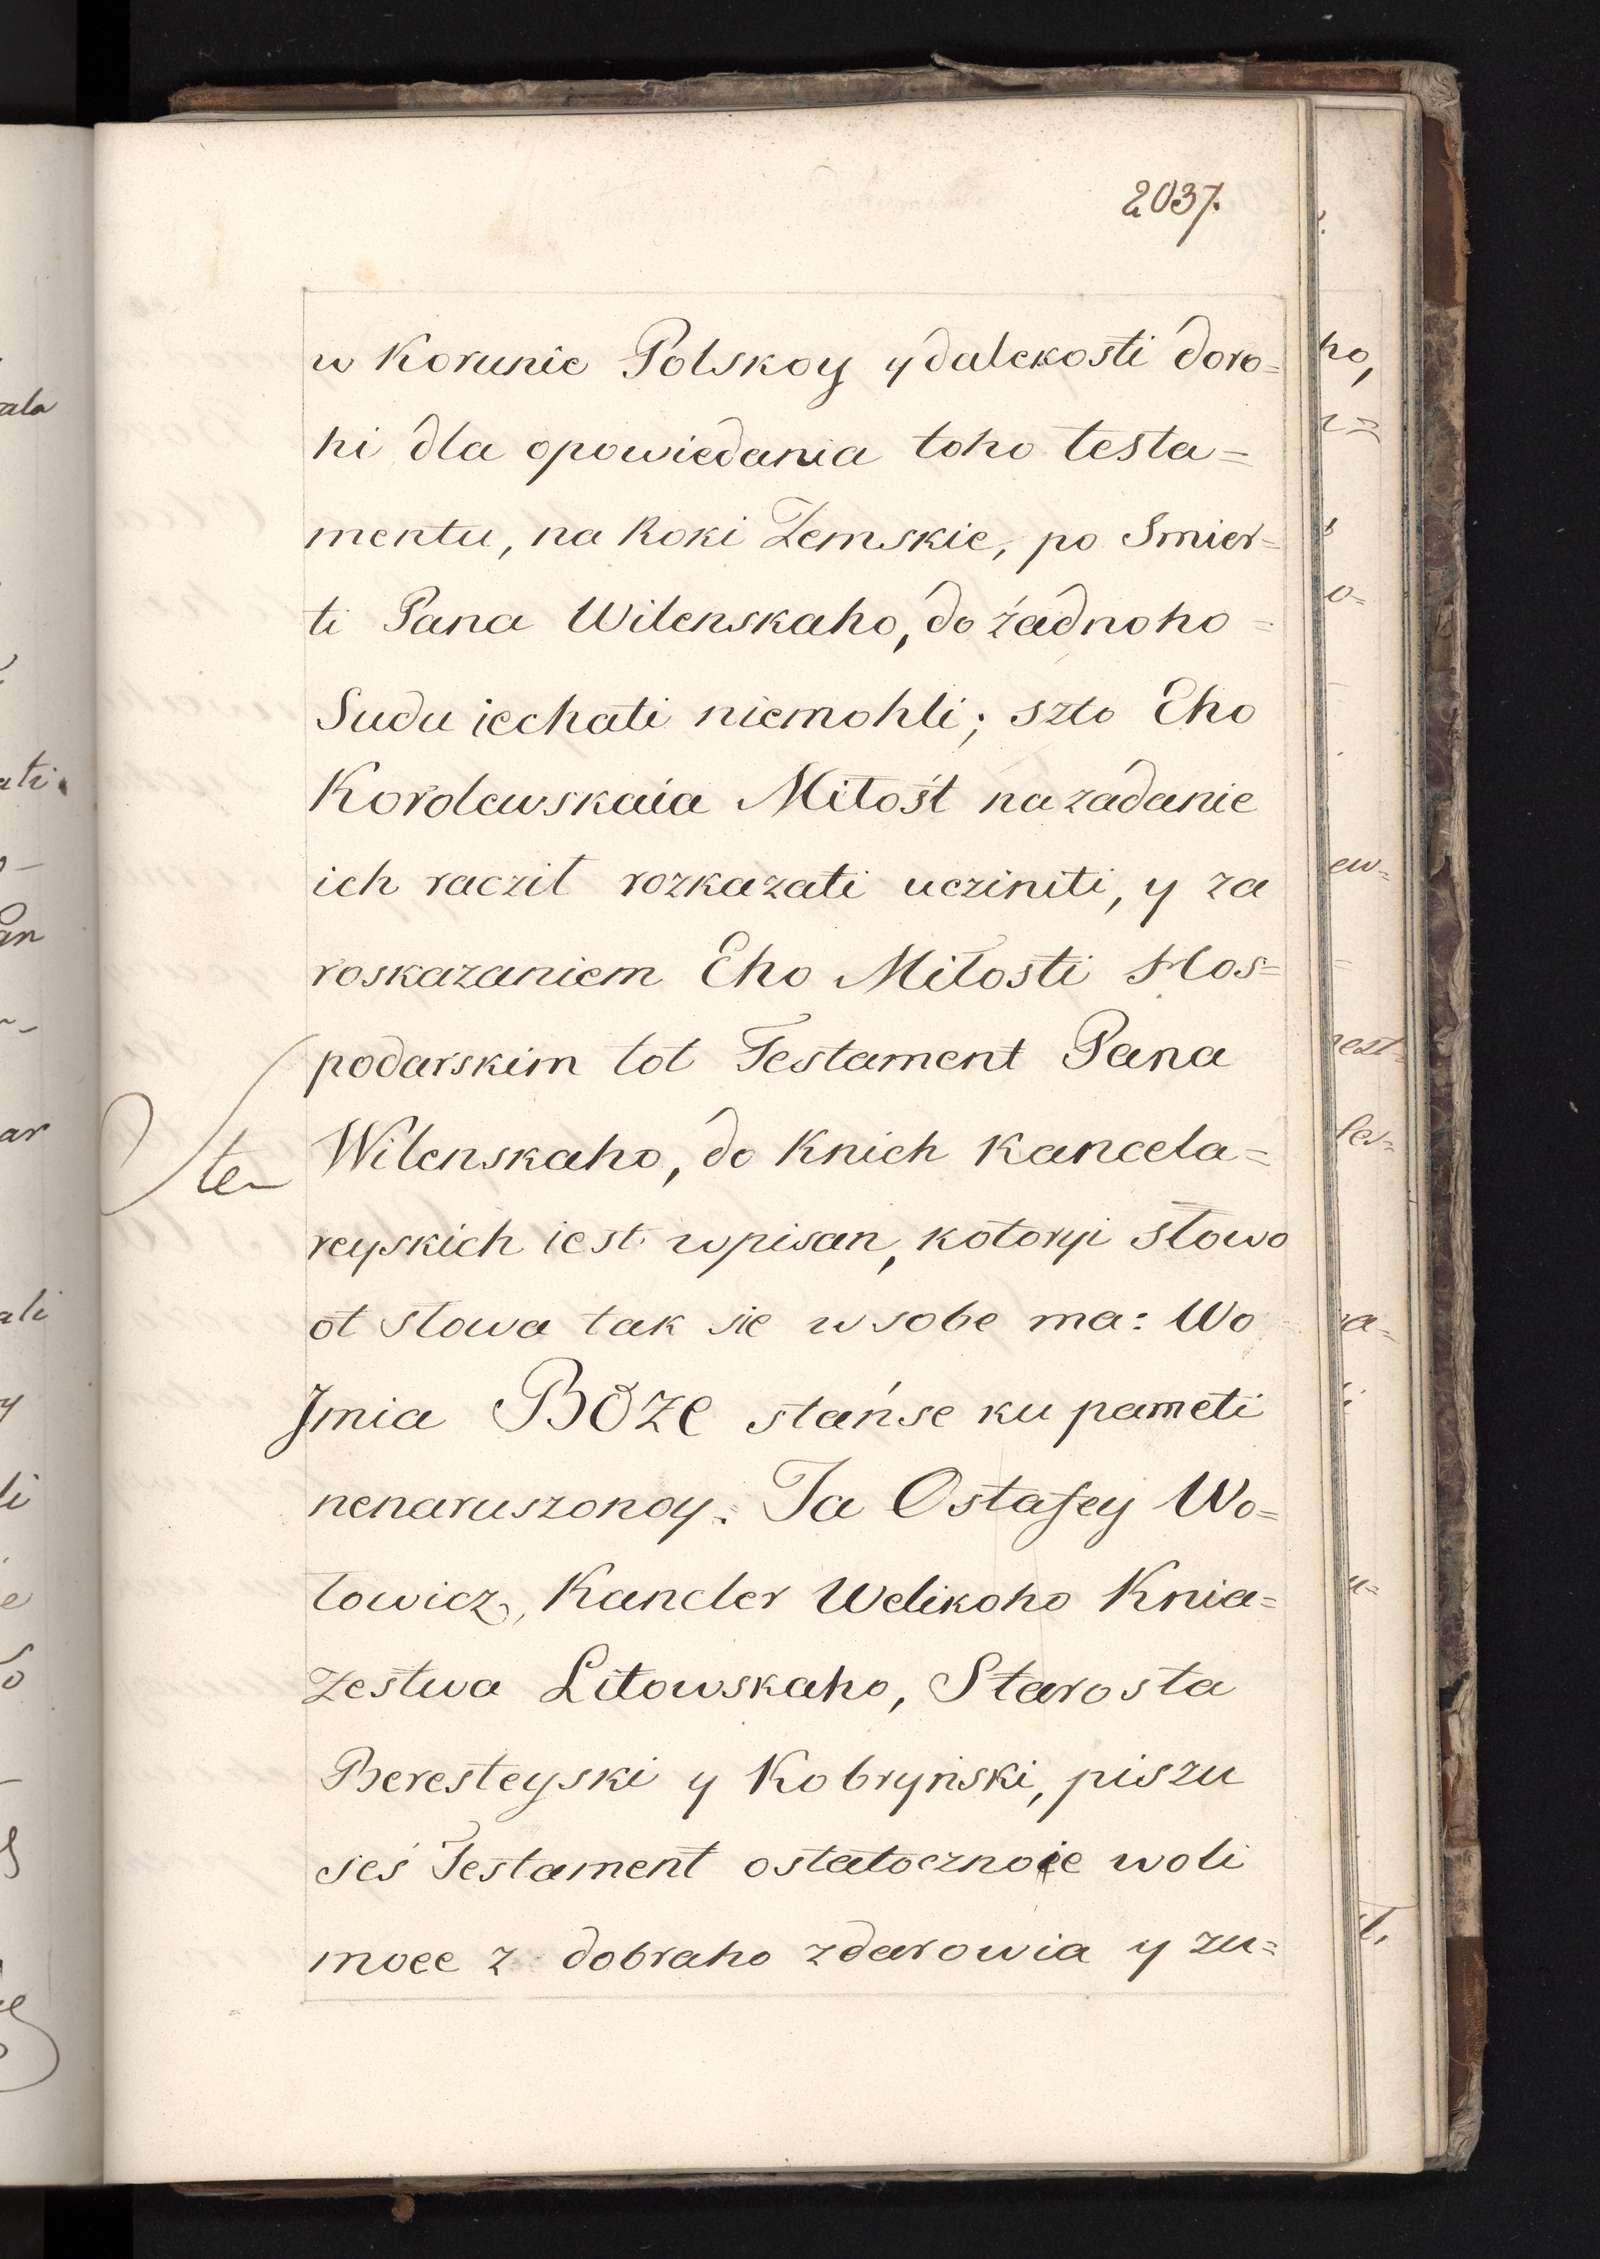 2037.
w Korunie Polskoy y dalekosti doro=
hi dla opowiedania toho testa=
mentu, na Roki Zemskie, po Smier=
ti Pana Wilenskaho, do żadnoho =
Sudu iechati niemohli; szto Eho
Korolewskaia Miłośt na zadanie
ich raczil rozkazati ucziniti, y za
roskazaniem Eho Miłosti Hos=
podarskim tot Testament Pana
Wilenskaho, do Knich Kancela=
ten
reyskich iest wpisan, kotoryi słowo
ot słowa tak sie w sobe ma: Wo
Jmia BOZE stańse ku pameti
nenaruszonoy. Ja Ostafey Wo=
łowicz, Kancler Welikoho Knia=
zestwa Litowskaho, Starosta
Beresteyski y Kobryński, piszu
seś Testament ostatocznoie woli
moee z dobraho zdarowia y zu=